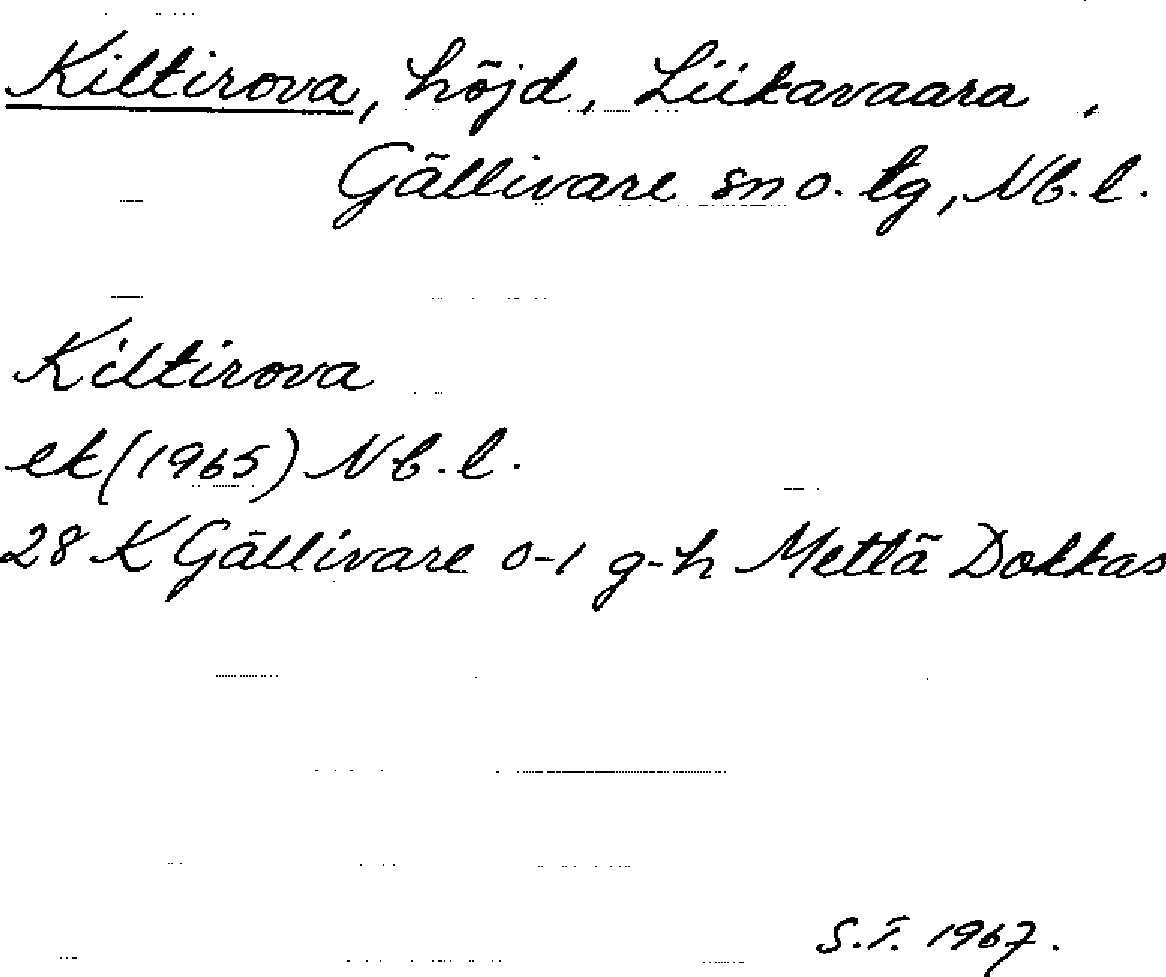 Kiltirova, höjd, Liikavaara,
Gällivare sn o. tg, Nb. l.
Kiltirova
ek (1965) Nb. l.
28 K Gällivare 0-1 g-h Mettä Dokkas
S.F. 1967.